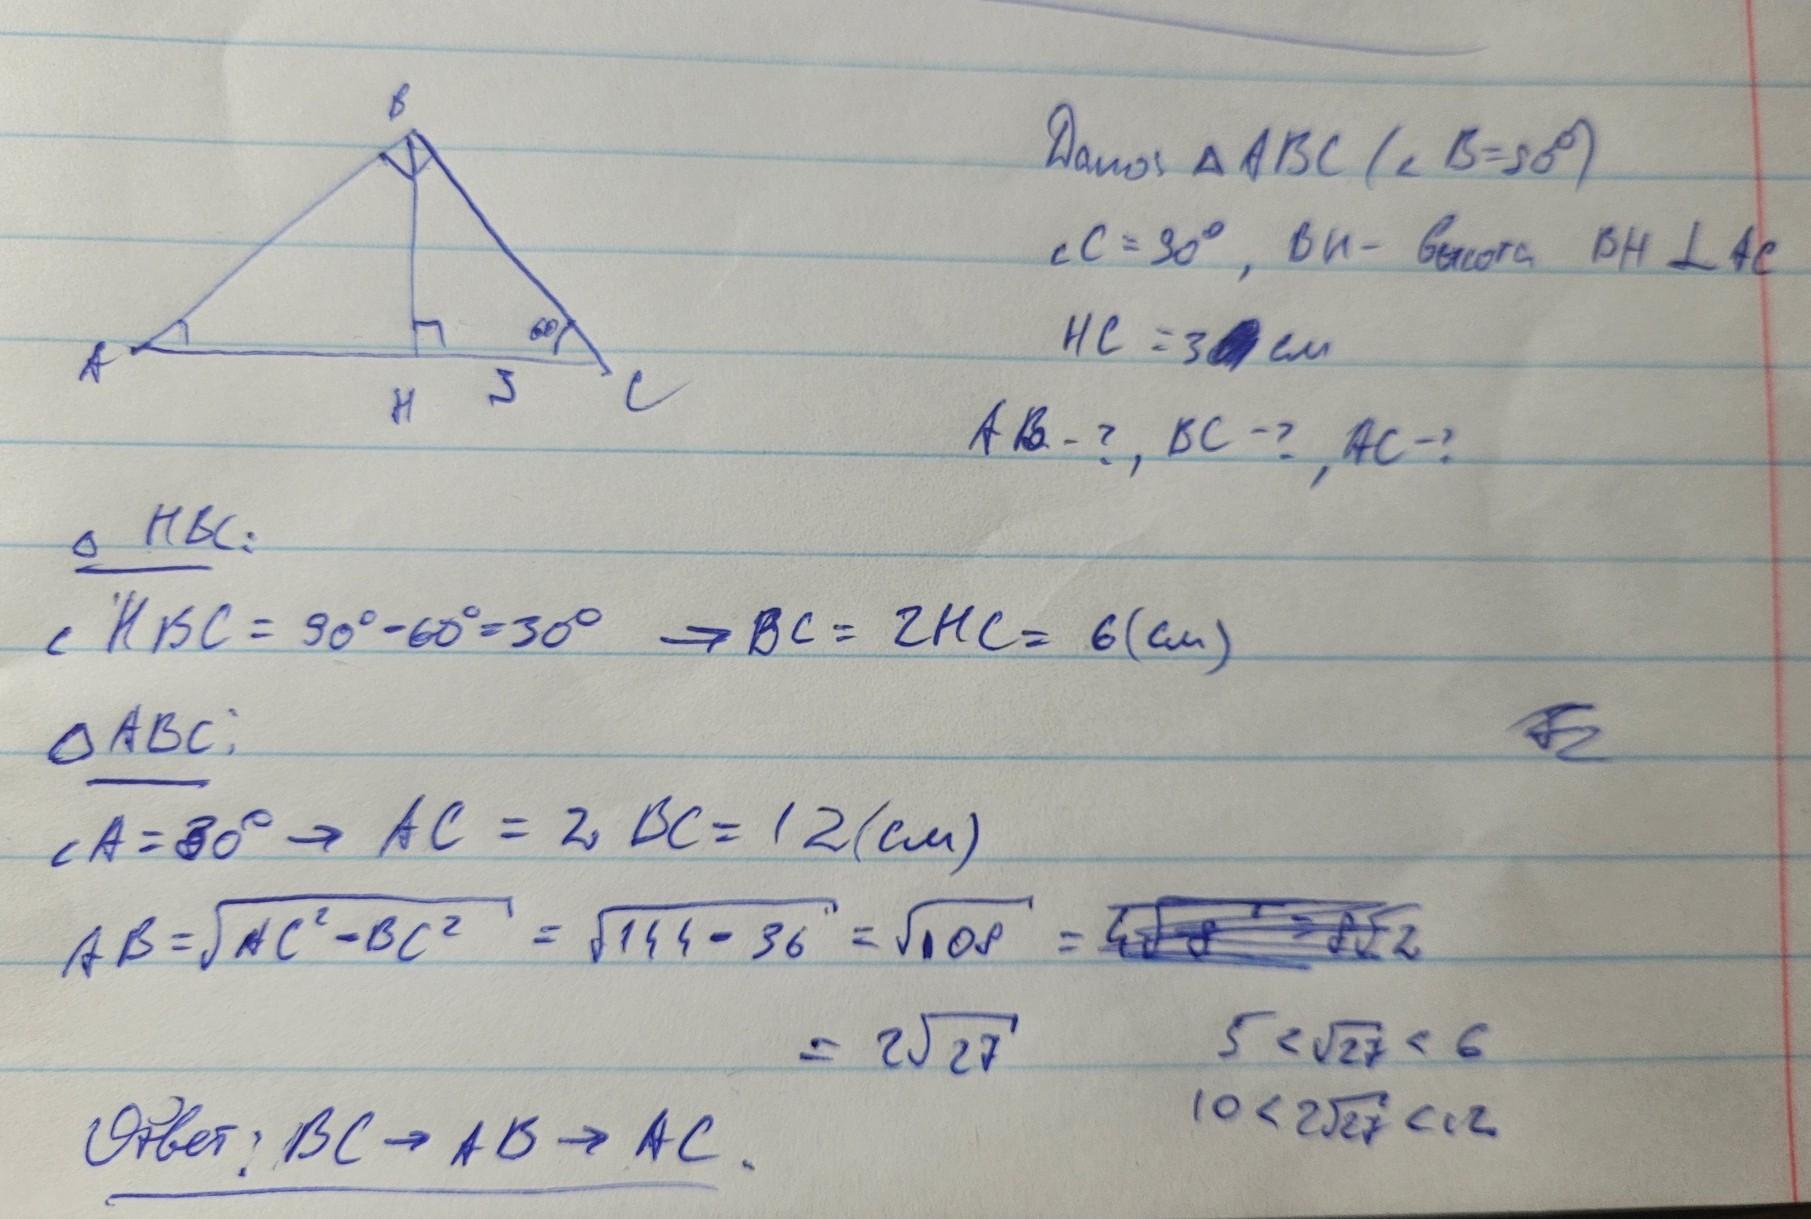 B
A
H
3
C
60
Дано: △ ABC (∠ B=90°)
∠C = 90°, BH - высота BH ⊥ AC
HC = 3 см
AB - ?, BC - ?, AC - ?
△ HBC:
∠ HBC = 90° - 60° = 30° → BC = 2HC = 6 (см)
△ ABC:
∠A = 30° → AC = 2 BC = 12 (см)
AB = √AC² - BC² = √144 - 36 = √108 =
= 2√27
5 < √27 < 6
10 < 2√27 < 12
Ответ: BC → AB → AC.